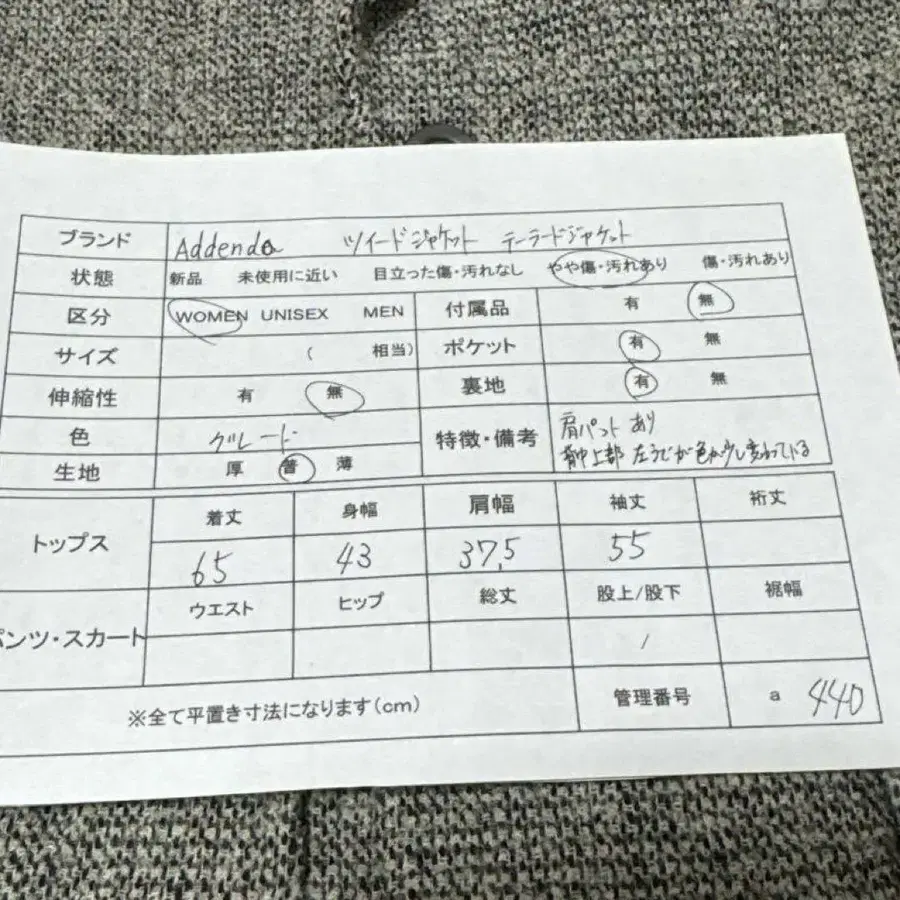 ブランド Addenda ツイードジャケット テーラードジャケット
状態 新品 未使用に近い 目立った傷・汚れなし やや傷・汚れあり 傷・汚れあり
区分 WOMEN UNISEX MEN 付属品 有 無
サイズ ( 相当) ポケット 有 無
伸縮性 有 無 裏地 有 無
色 グレード 特徴・備考 肩パット あり
背中上部 左うでが色が少し変わっている
生地 厚 普 薄
トップス 着丈 身幅 肩幅 袖丈 裄丈
65 43 37,5 55
パンツ・スカート ウエスト ヒップ 総丈 股上/股下 裾幅
/
※全て平置き寸法になります(cm) 管理番号 a 440